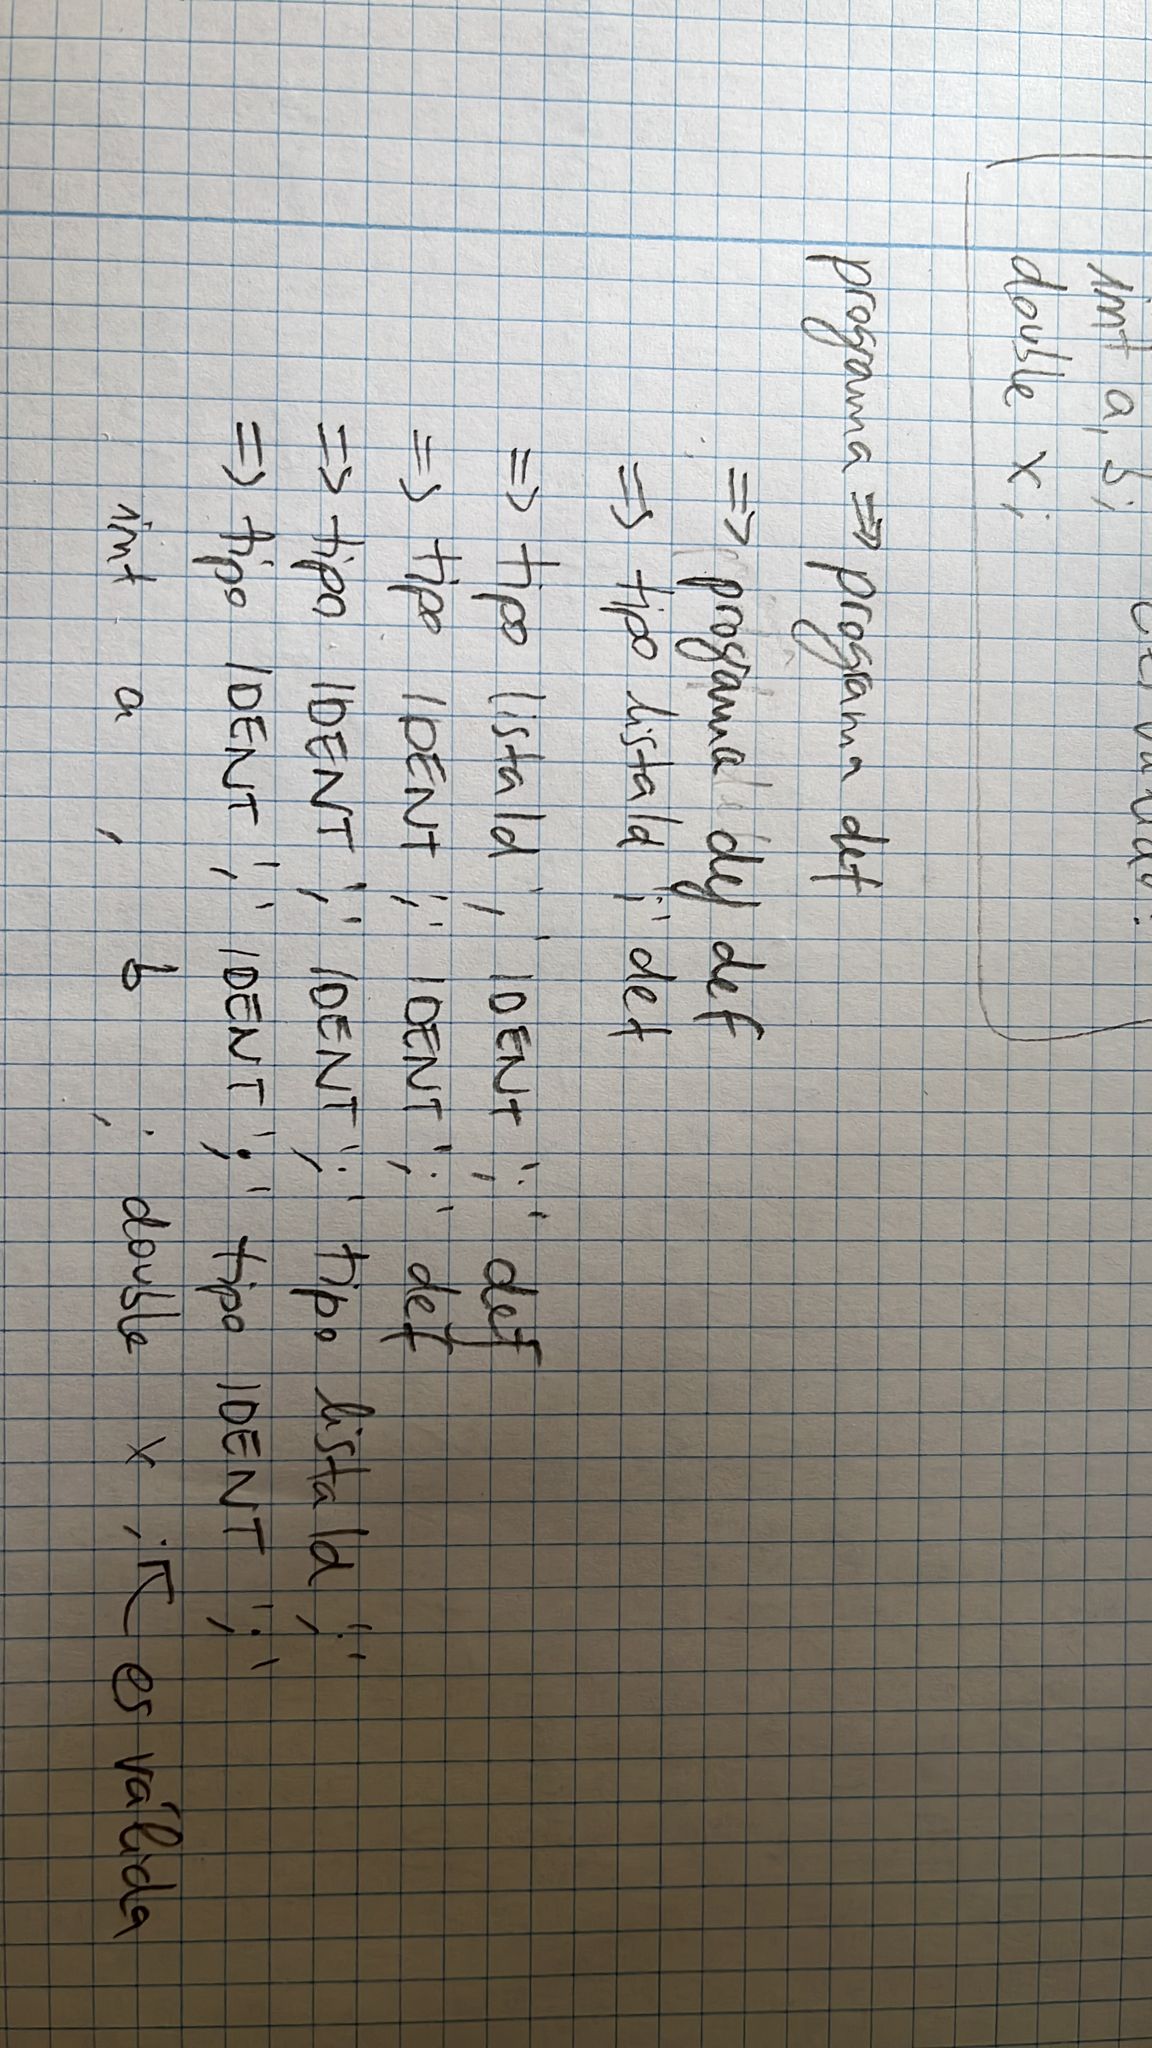 int a, b;
double x;
programa => programa def
=> programa def def
=> tipo listaId ';' def
=> tipo listaId ',' IDENT ';' def
=> tipo IDENT ',' IDENT ';' def
=> tipo IDENT ',' IDENT ';' tipo listaId ';'
=> tipo IDENT ',' IDENT ';' tipo IDENT ';'
int a , b ; double x ; ↖ es válida